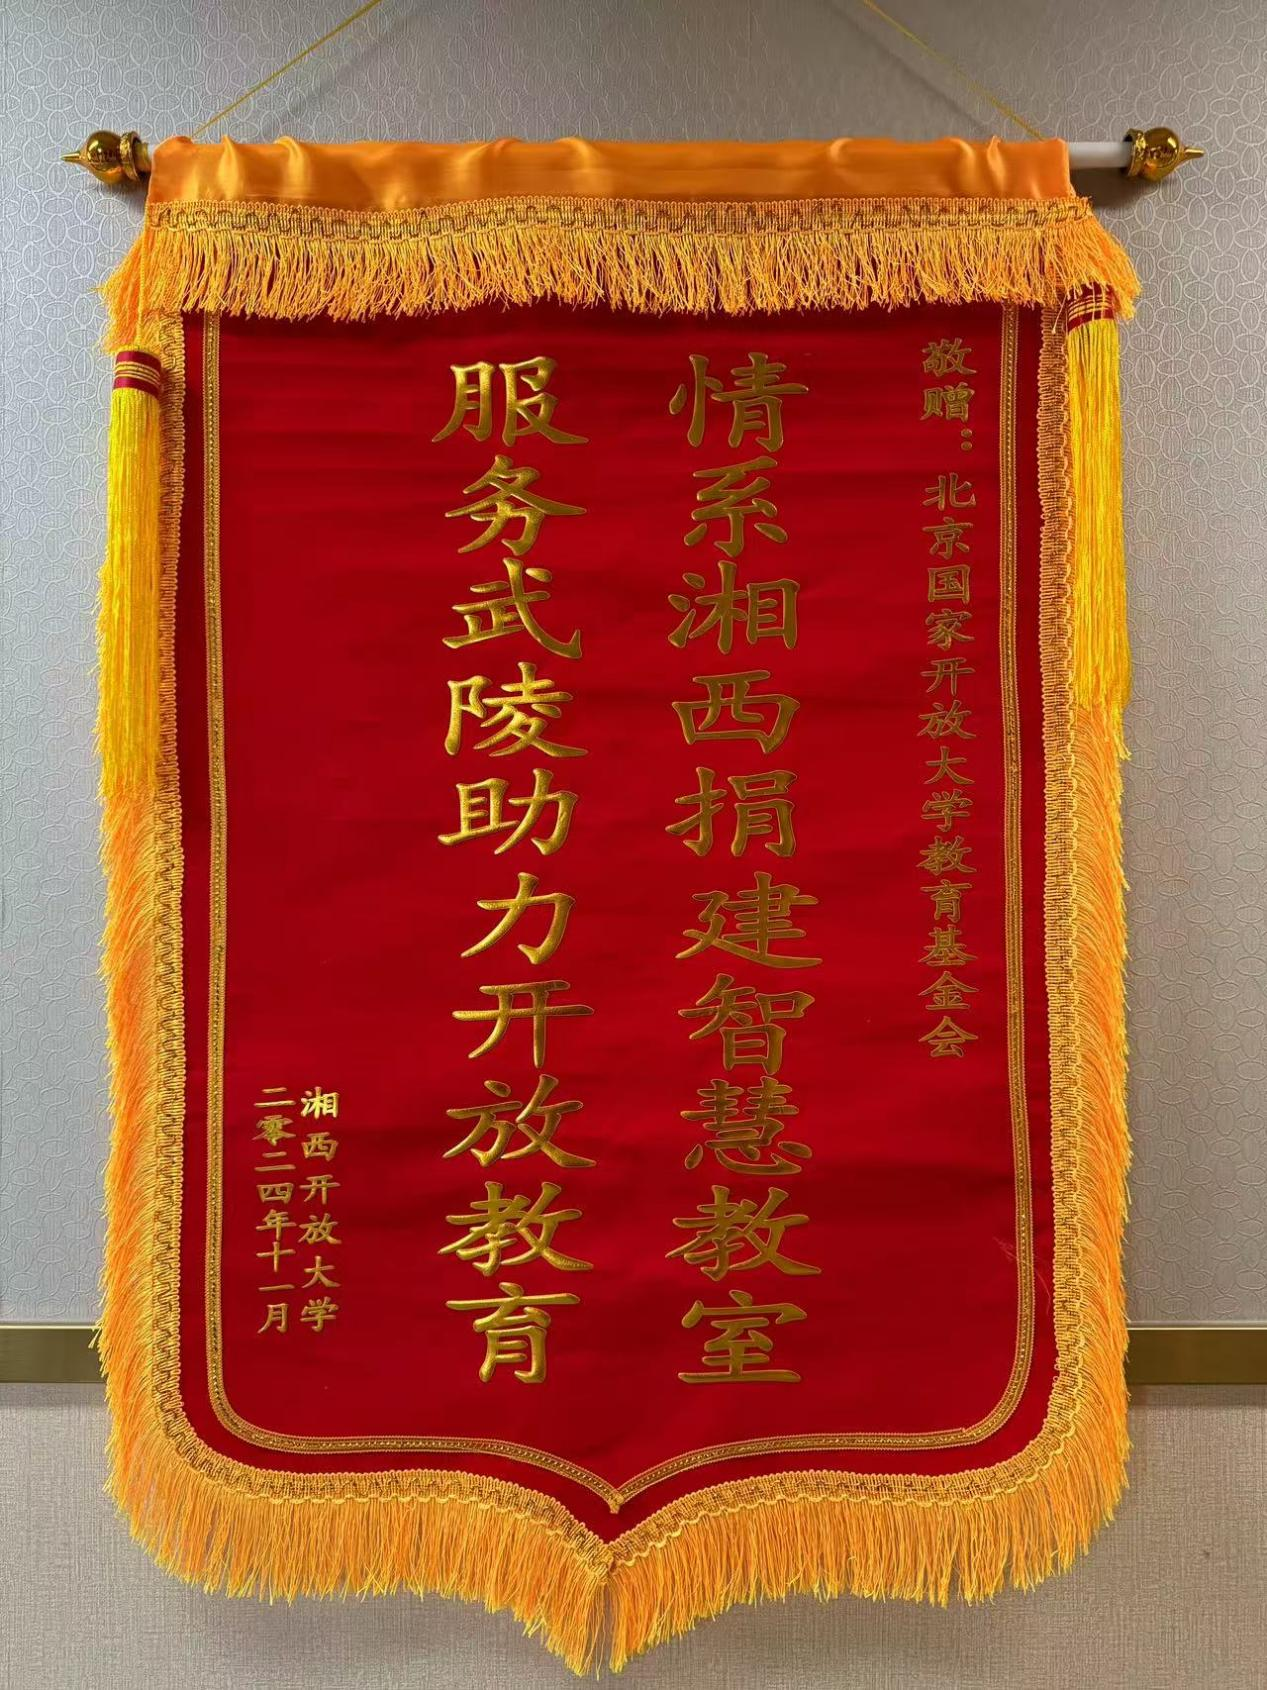 敬赠：北京国家开放大学教育基金会
情系湘西捐建智慧教室
服务武陵助力开放教育
湘西开放大学
二零二四年十一月